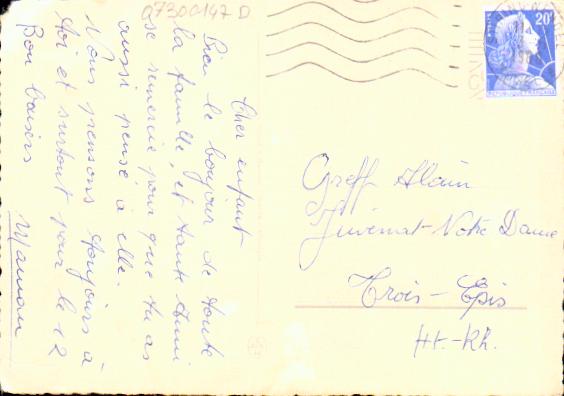 07300147 D
Cher enfant
Bien le bonjour de toute
la famille, et tante Mimi
se remercie pour que tu as
aussi pensé à elle.
Nous pensons toujours à
toi et surtout pour le 12
Bon baisers Maman
20F
Greff Alain
Juvenat-Notre Dame
Trois-Epis
Ht.-Rh.